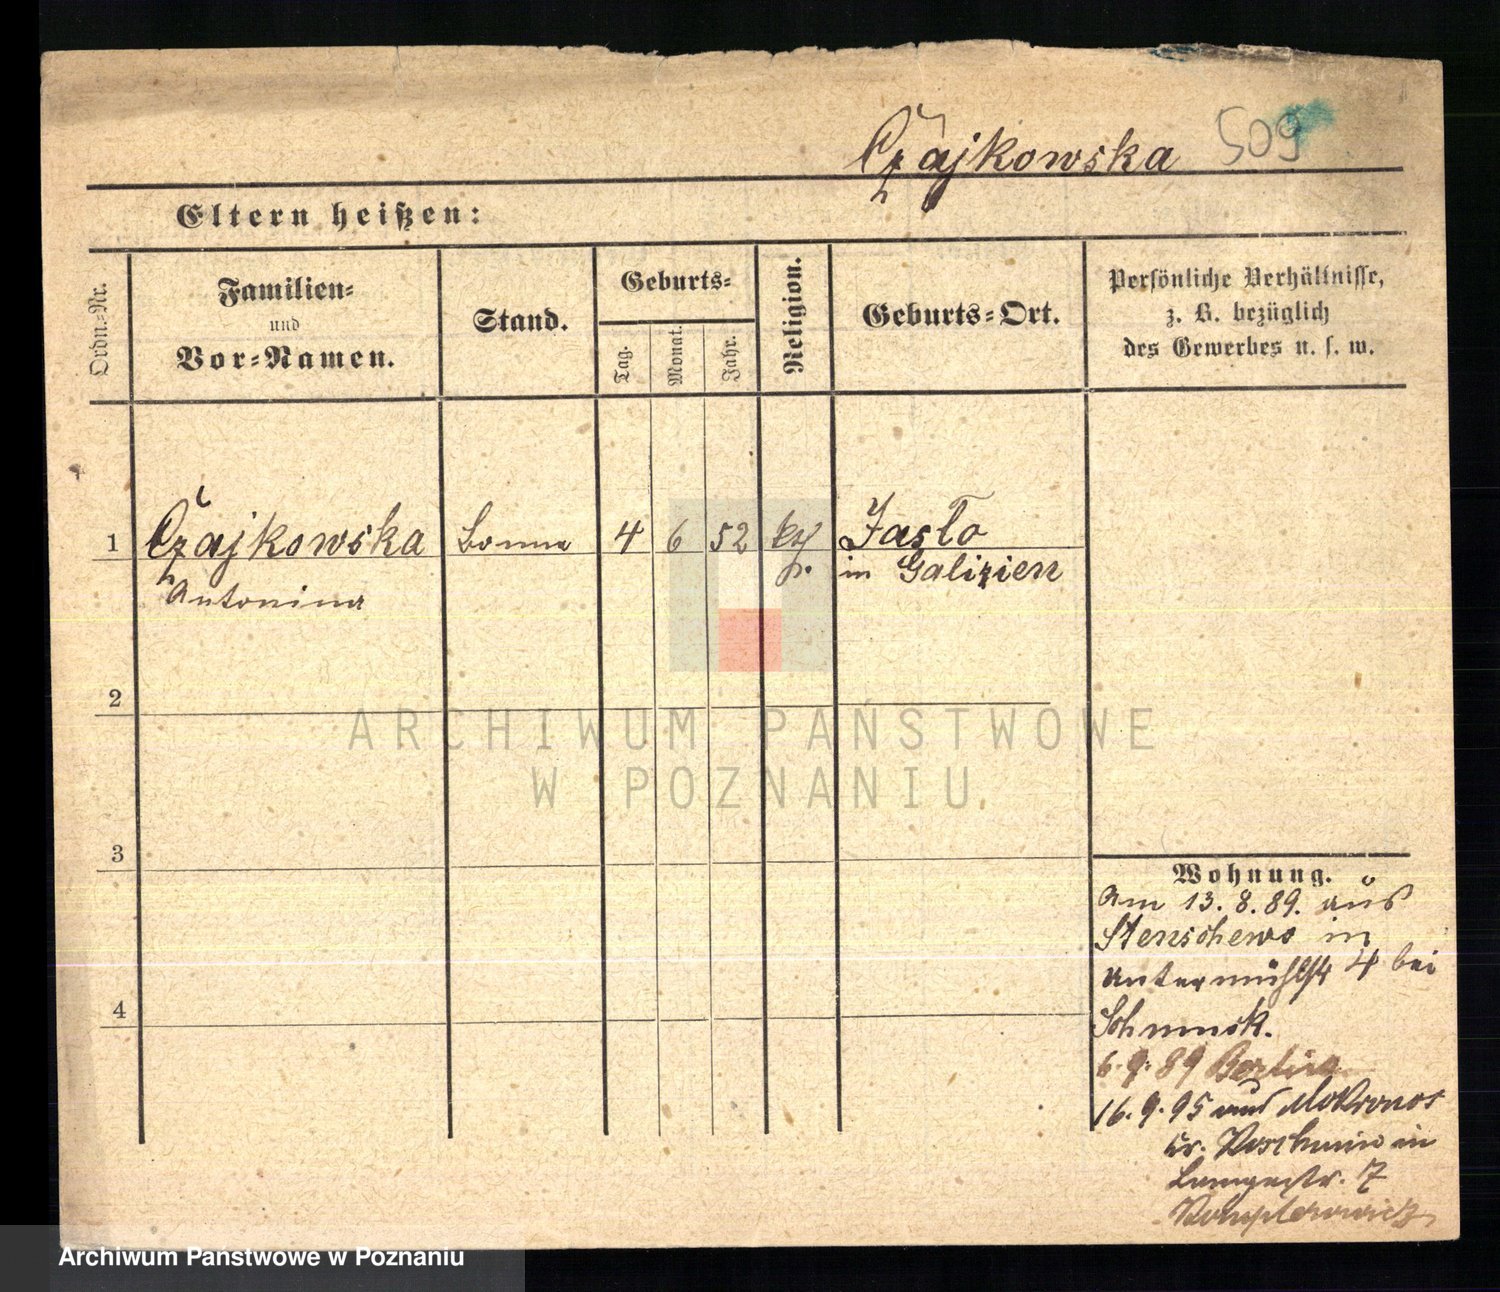 Czajkowska 509
Eltern heißen:
Ordn.-Nr.
Familien-
und
Vor-Namen.
Stand.
Geburts-
Tag.
Monat.
Jahr.
Religion.
Geburts-Ort.
Persönliche Verhältnisse,
z. B. bezüglich
des Gewerbes u. s. w.
1 Czajkowska Bonne 4 6 52 Jasło
Antonina in Galizien
2
3
4
Wohnung.
Am 13. 8. 89. aus
Stenschewo in
Untermühlstr 4 bei
6. 9. 89 Berlin
16. 9. 95 aus Mokronos
Kr. Koschmin in
Langestr. 7
ARCHIWUM PAŃSTWOWE
W POZNANIU
Archiwum Państwowe w Poznaniu